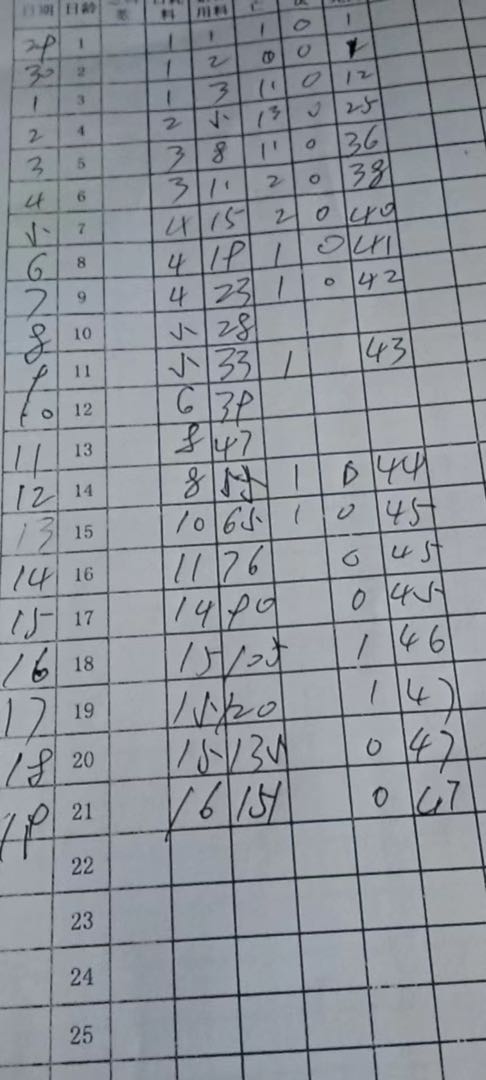 日期 日龄 料 用料
29 1 1 1 1 0 1
30 2 1 2 0 0 1
1 3 1 3 11 0 12
2 4 2 5 13 0 25
3 5 3 8 11 0 36
4 6 3 11 2 0 38
5 7 4 15 2 0 40
6 8 4 19 1 0 41
7 9 4 23 1 0 42
8 10 5 28
9 11 5 33 1 43
10 12 6 39
11 13 8 47
12 14 8 55 1 0 44
13 15 10 65 1 0 45
14 16 11 76 0 45
15 17 14 90 0 45
16 18 15 105 1 46
17 19 15 120 1 47
18 20 15 135 0 47
19 21 16 151 0 47
22
23
24
25